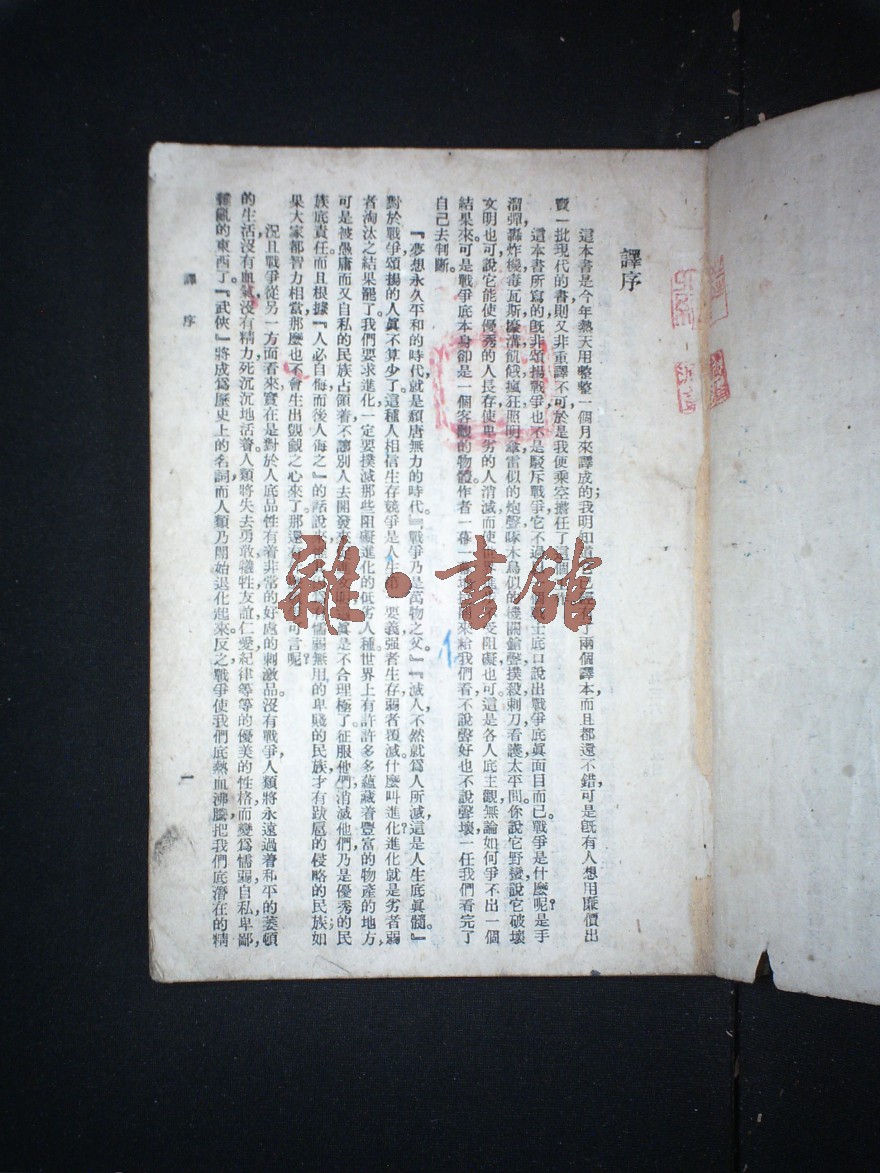 譯序
這本書是今年熱天用整整一個月來譯成的；我明知道
有了兩個譯本，而且都還不錯，可是既有人想用廉價出
賣一批現代的書，則又非重譯不可，於是我便乘空擔任了這個
這本書所寫的，既非頌揚戰爭，也不是駁斥戰爭，它不過
士底口說出戰爭底眞面目而已。戰爭是什麼呢？是手
溜彈，轟炸機，毒瓦斯，壕溝，飢餓，瘋狂，照明彈，雷似的炮聲，啄木鳥似的機關鎗聲，撲殺，刺刀，看護，太平間。你說它野蠻，說它破壞
文明也可，說它能使優秀的人長存，使卑劣的人消滅，而使
阻礙也可。這是各人底主觀，無論如何爭不出一個
結果來。可是戰爭底本身卻是一個客觀的物體，作者一幕一
來給我們看，不說聲好，也不說聲壞，一任我們看完了
自己去判斷。
『夢想永久平和的時代，就是頹唐無力的時代。』『戰爭乃是萬物之父。』『滅人，不然就爲人所滅，這是人生底眞髓。』
對於戰爭頌揚的人眞不算少了。這種人相信生存競爭是人生第一要義，强者生存，弱者覆滅。什麼叫進化？進化就是劣者弱
者淘汰之結果罷了。我們要求進化，一定要撲滅那些阻礙進化的低劣人種。世界上有許許多多蘊藏着豐富的物產的地方，
可是被愚庸而又自私的民族占領着，不讓別人去開發
眞是不合理極了。征服他們，消滅他們，乃是優秀的民
族底責任。而且根據『人必自侮而後人侮之』的話說來
懦弱無用的卑賤的民族，才有跋扈的侵略的民族；如
果大家都智力相當，那麼也不會生出覬覦之心來了。那還有
可言呢？
况且戰爭從另一方面看來，實在是對於人底品性有着非常的好處的刺激品。沒有戰爭，人類將永遠過着和平的萎頓
的生活，沒有血氣，沒有精力，死沉沉地活着。人類將失去勇敢，犧牲，友誼，仁愛，紀律等等的優美的性格，而變爲懦弱，自私，卑鄙，
雜亂的東西了。『武俠』將成爲歷史上的名詞，而人類乃開始退化起來。反之，戰爭使我們底熱血沸騰，把我們底潛在的精
譯序
一
雜·書館